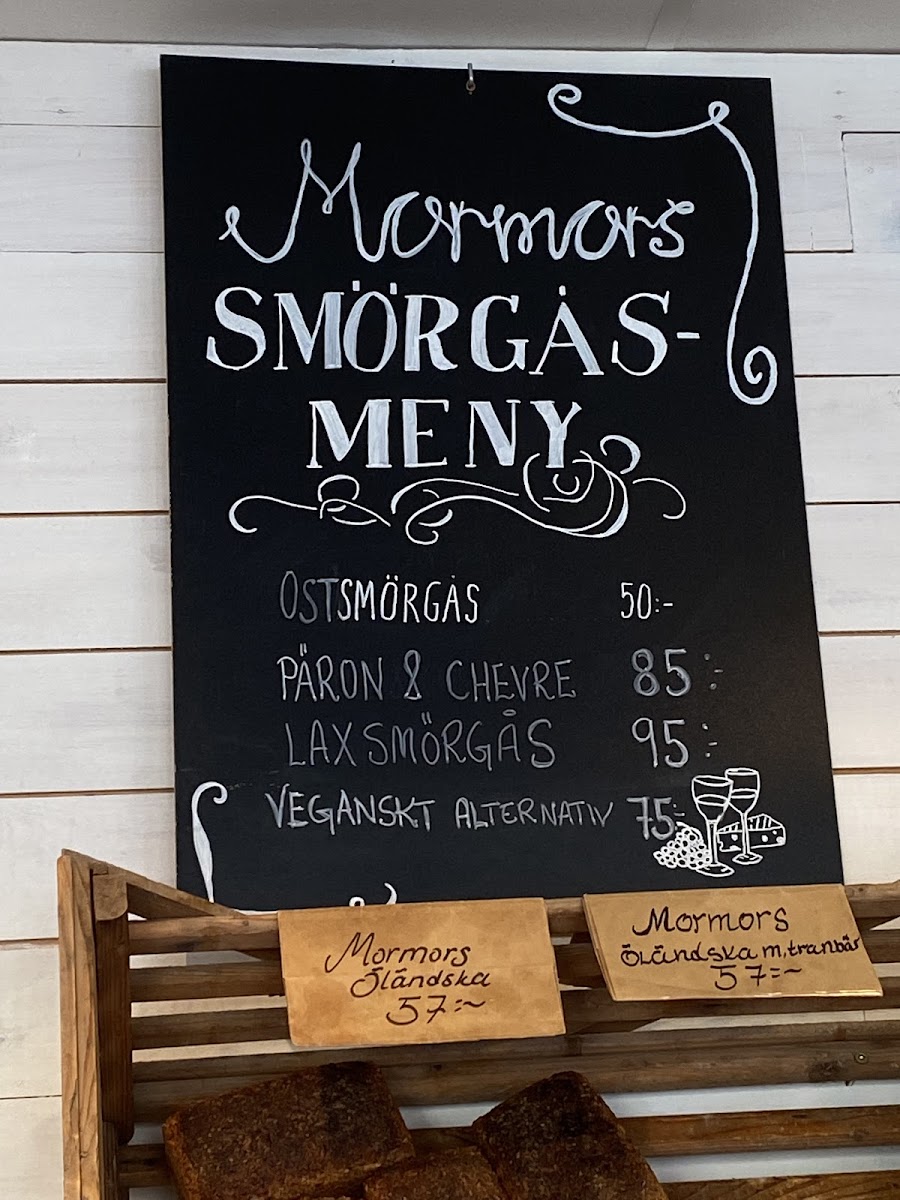 Mormors
SMÖRGÅS-
MENY
OSTSMÖRGÅS 50:-
PÄRON & CHEVRE 85:-
LAXSMÖRGÅS 95:-
VEGANSKT ALTERNATIV 75:-
Mormors
Öländska
57:~
Mormors
Öländska m,tranbär
57:~